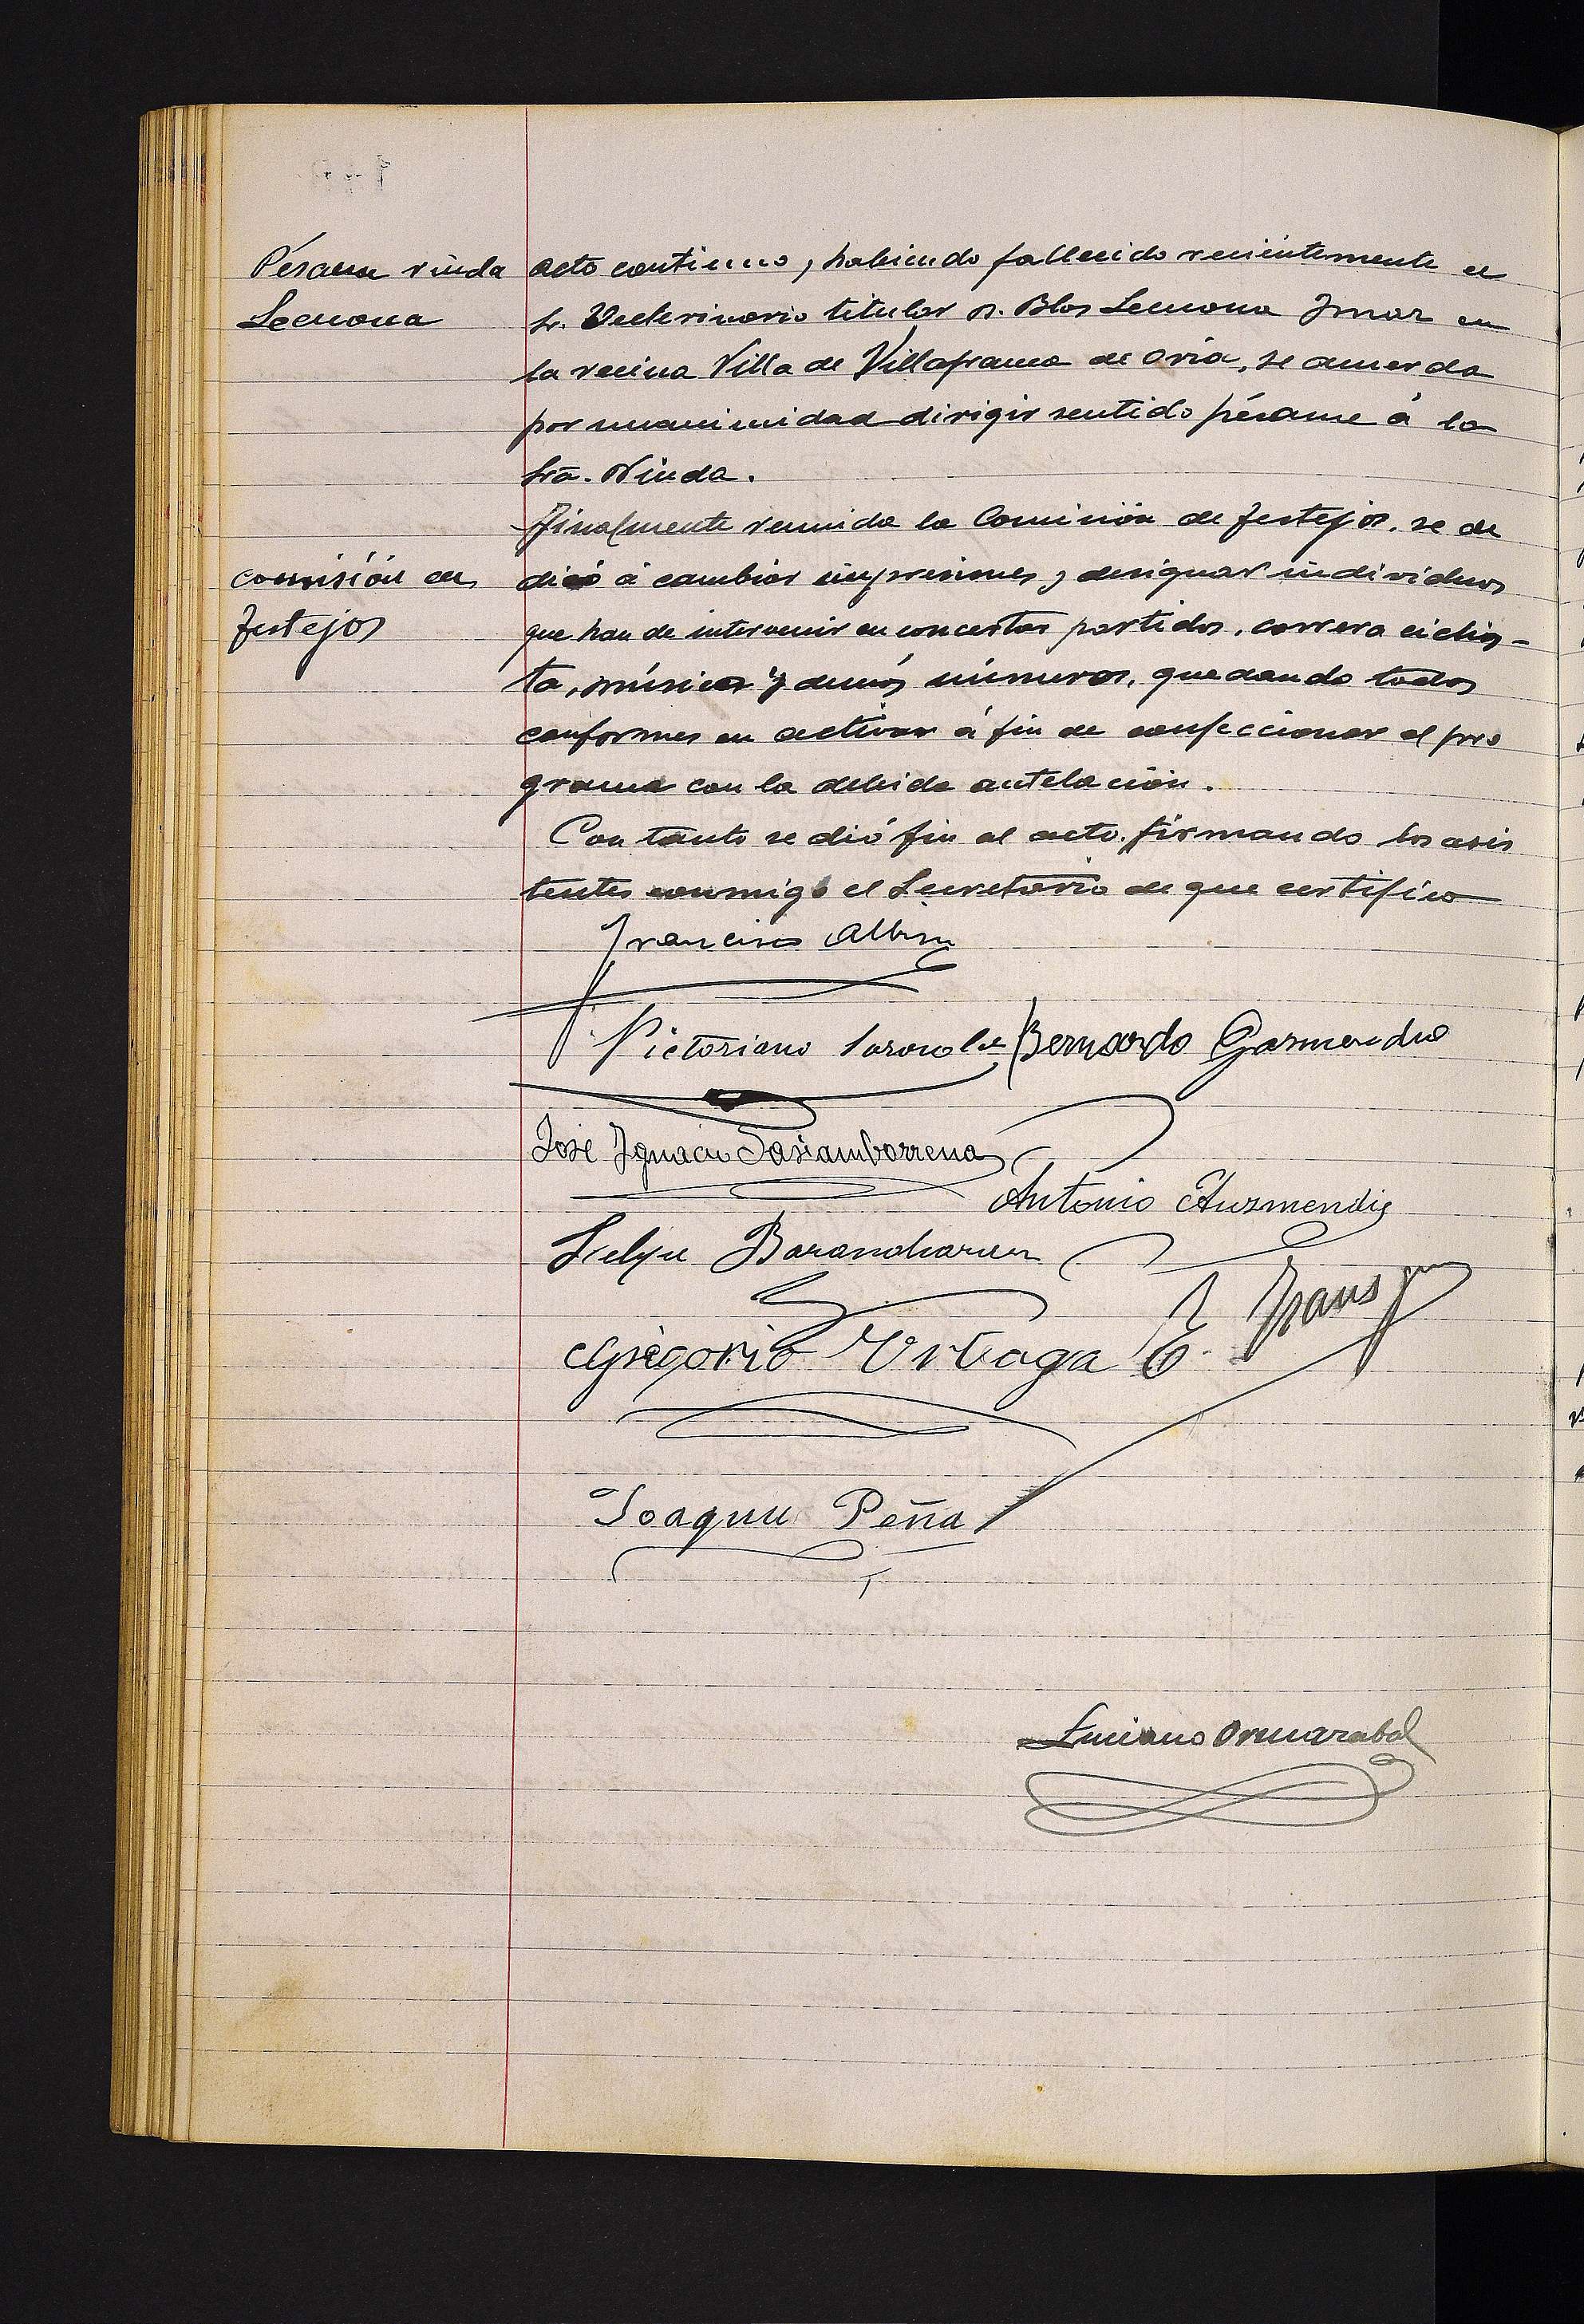 Pésame viuda
Lecuona
acto continuo, habiendo fallecido recientemente el
Sr. Veterinario titular D. Blas Lecuona Imaz en
la vecina Villa de Villafranca de Oria, se acuerda
por unanimidad dirigir sentido pésame á la
Sra. Viuda.
Finalmente reunida la Comisión de festejos, se de
comisión de
festejos
dicó á cambiar impresiones, y designar individuos
que han de intervenir en concertar partidos, carrera ciclis-
ta, músicos y demás números, quedando todos
conformes en activar á fin de confeccionar el pro
grama con la debida antelación.
Con tanto se dió fin al acto, firmando los asis
tentes conmigo el Secretario de que certifico
Francisco Albisu
Victoriano Bernardo Garmendia
José Ignacio Sasiambarrena
Antonio Auzmendi
Felipe Barandiaran
Gregorio Urteaga E.
Joaquin Peña
Luciano Ormazabal